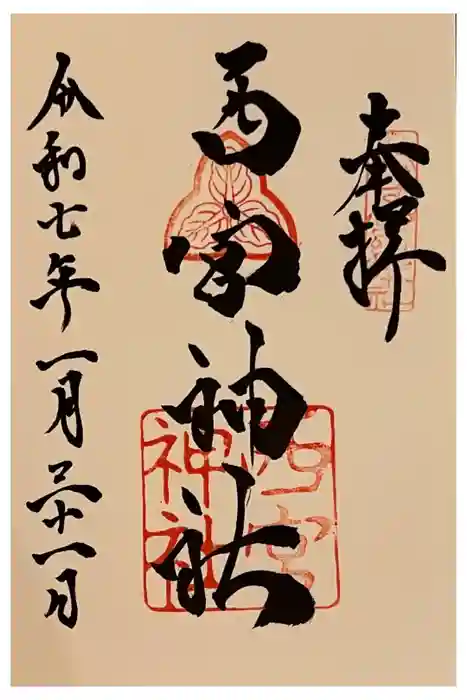 奉拝
西宮神社
西宮
神社
令和七年一月二十一日